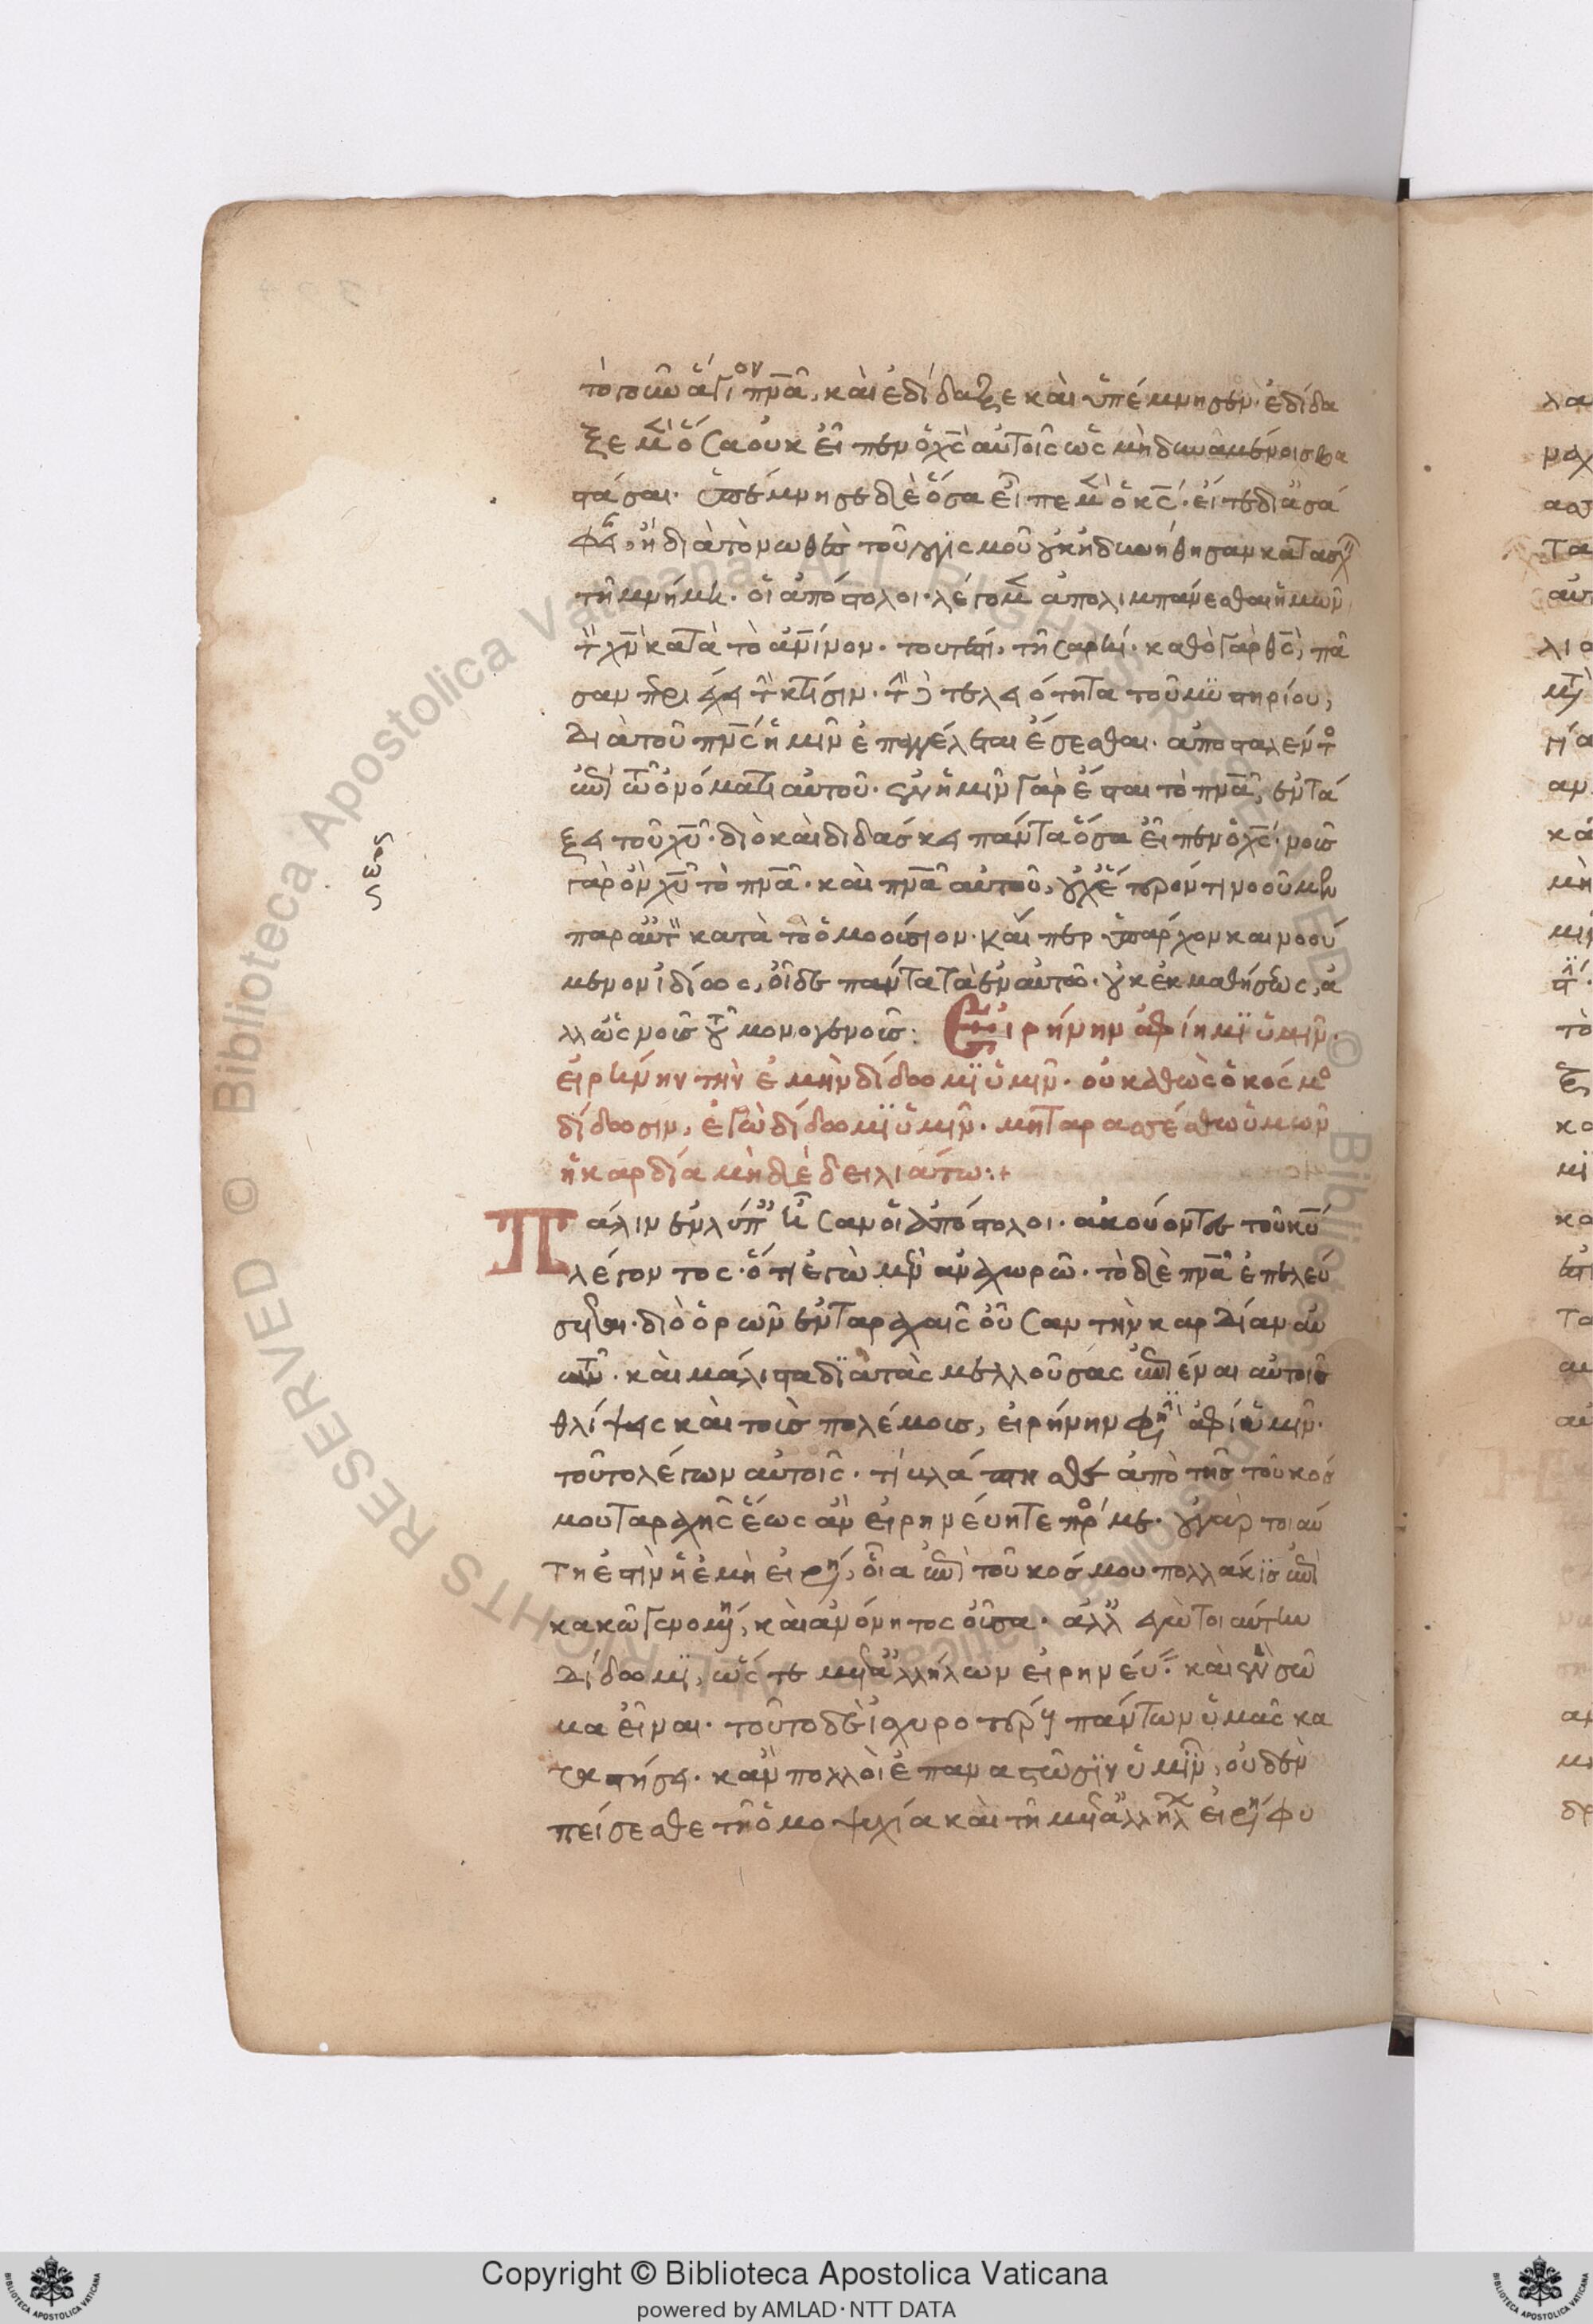 τὸ τοίνυν ἅγιον πνᾶ, καὶ ἐδίδαξε καὶ ὑπέμνησεν· ἐδίδα
ξε μὲν ὅσα οὐκ εἶπεν ὁ χς αὐτοῖς ὡς μὴ δυναμένοις βα
στάσαι· ὑπέμνησε δὲ ὅσα εἶπε μὲν ὁ κς· εἴτε δι' ἀσά
φειαν, ἢ διὰ τὸ νωθὲς τοῦ λογισμοῦ οὐκ ἠδυνήθησαν κατασχεῖν
τῇ μνήμῃ οἱ ἀπόστολοι· λέγομεν ἀπολιμπάνεσθαι ἡμῶν
τὸν χν κατὰ τὸ ἀνινον· τουτέστι, τῇ σαρκί· καθὸ γὰρ θς, πᾶ
σαν περιέχει τὴν κτίσιν· τὴν δὲ τελειότητα τοῦ μυστηρίου,
διὰ τοῦ πνς ἡμῖν ἐπηγγέλται ἔσεσθαι· ἀποσταλέντος
ἐπὶ τῷ ὀνόματι αὐτοῦ· σὺν ἡμῖν γὰρ ἔσται τὸ πνᾶ, ἐν τά
ξει τοῦ χυ· διὸ καὶ διδάσκει πάντα ὅσα εἶπεν ὁ χς· νοῦς
γὰρ ὂν χυ τὸ πνᾶ· καὶ πνᾶ αὐτοῦ, οὐχ ἕτερόν τι νοούμενον
παρ' αὐτὸν κατὰ τὸ ὁμοούσιον· κἄν περ ὑπάρχον καὶ νοού
μενον ἰδίως, οἶδε πάντα τὰ ἐν αὐτῷ· οὐκ ἐκ μαθήσεως, ἀ
λλ' ὡς νοῦς
Εἰρήνην ἀφίημι ὑμῖν·
εἰρήνην τὴν ἐμὴν δίδωμι ὑμῖν· οὐ καθὼς ὁ κόσμος
δίδωσιν, ἐγὼ δίδωμι ὑμῖν· μὴ ταρασσέσθω ὑμῶν
ἡ καρδία μὴ δὲ δειλιάτω:+
Πάλιν ἐν λύπῃ ἦσαν οἱ ἀπόστολοι· ἀκούοντες τοῦ κυ
λέγοντος· ὅτι ἐγὼ μὲν ἀναχωρῶ· τὸ δὲ πνᾶ ἐπελεύ
σεται· διὸ ὁρῶν ἐν ταραχαῖς οὖσαν τὴν καρδίαν αὐ
τῶν· καὶ μάλιστα διὰ τὰς μελλούσας ἐπιέναι αὐτοῖς
θλίψεις καὶ τοῖς πολέμοις, εἰρήνην φησὶ ἀφίημι ὑμῖν·
τοῦτο λέγων αὐτοῖς· τί βλάπτησθε ἀπὸ τῆς τοῦ κόσ
μου ταραχῆς ἕως ἂν εἰρηνεύητε πρός με· οὐ γὰρ τοιαύ
τη ἐστὶν ἡ ἐμὴ εἰρήνη, οἷα ἐπὶ τοῦ κόσμου πολλάκις ἐπὶ
κακῷ γενομένη, καὶ ἀνόνητος οὖσα· ἀλλ' ἐγὼ τοιαύτην
δίδωμι, ὥστε μετ' ἀλλήλων εἰρηνεύειν· καὶ ἓν σῶ
μα εἶναι· τοῦτο δὲ ἰσχυροτέρους πάντων ὑμᾶς κα
ταστήσει· κἂν πολλοὶ ἐπαναστῶσιν ὑμῖν, οὐδὲν
πείσεσθε τῇ ὁμοψυχία καὶ τῇ μετ' ἀλλήλων εἰρήνη φυ
Copyright © Biblioteca Apostolica Vaticana
powered by AMLAD·NTT DATA